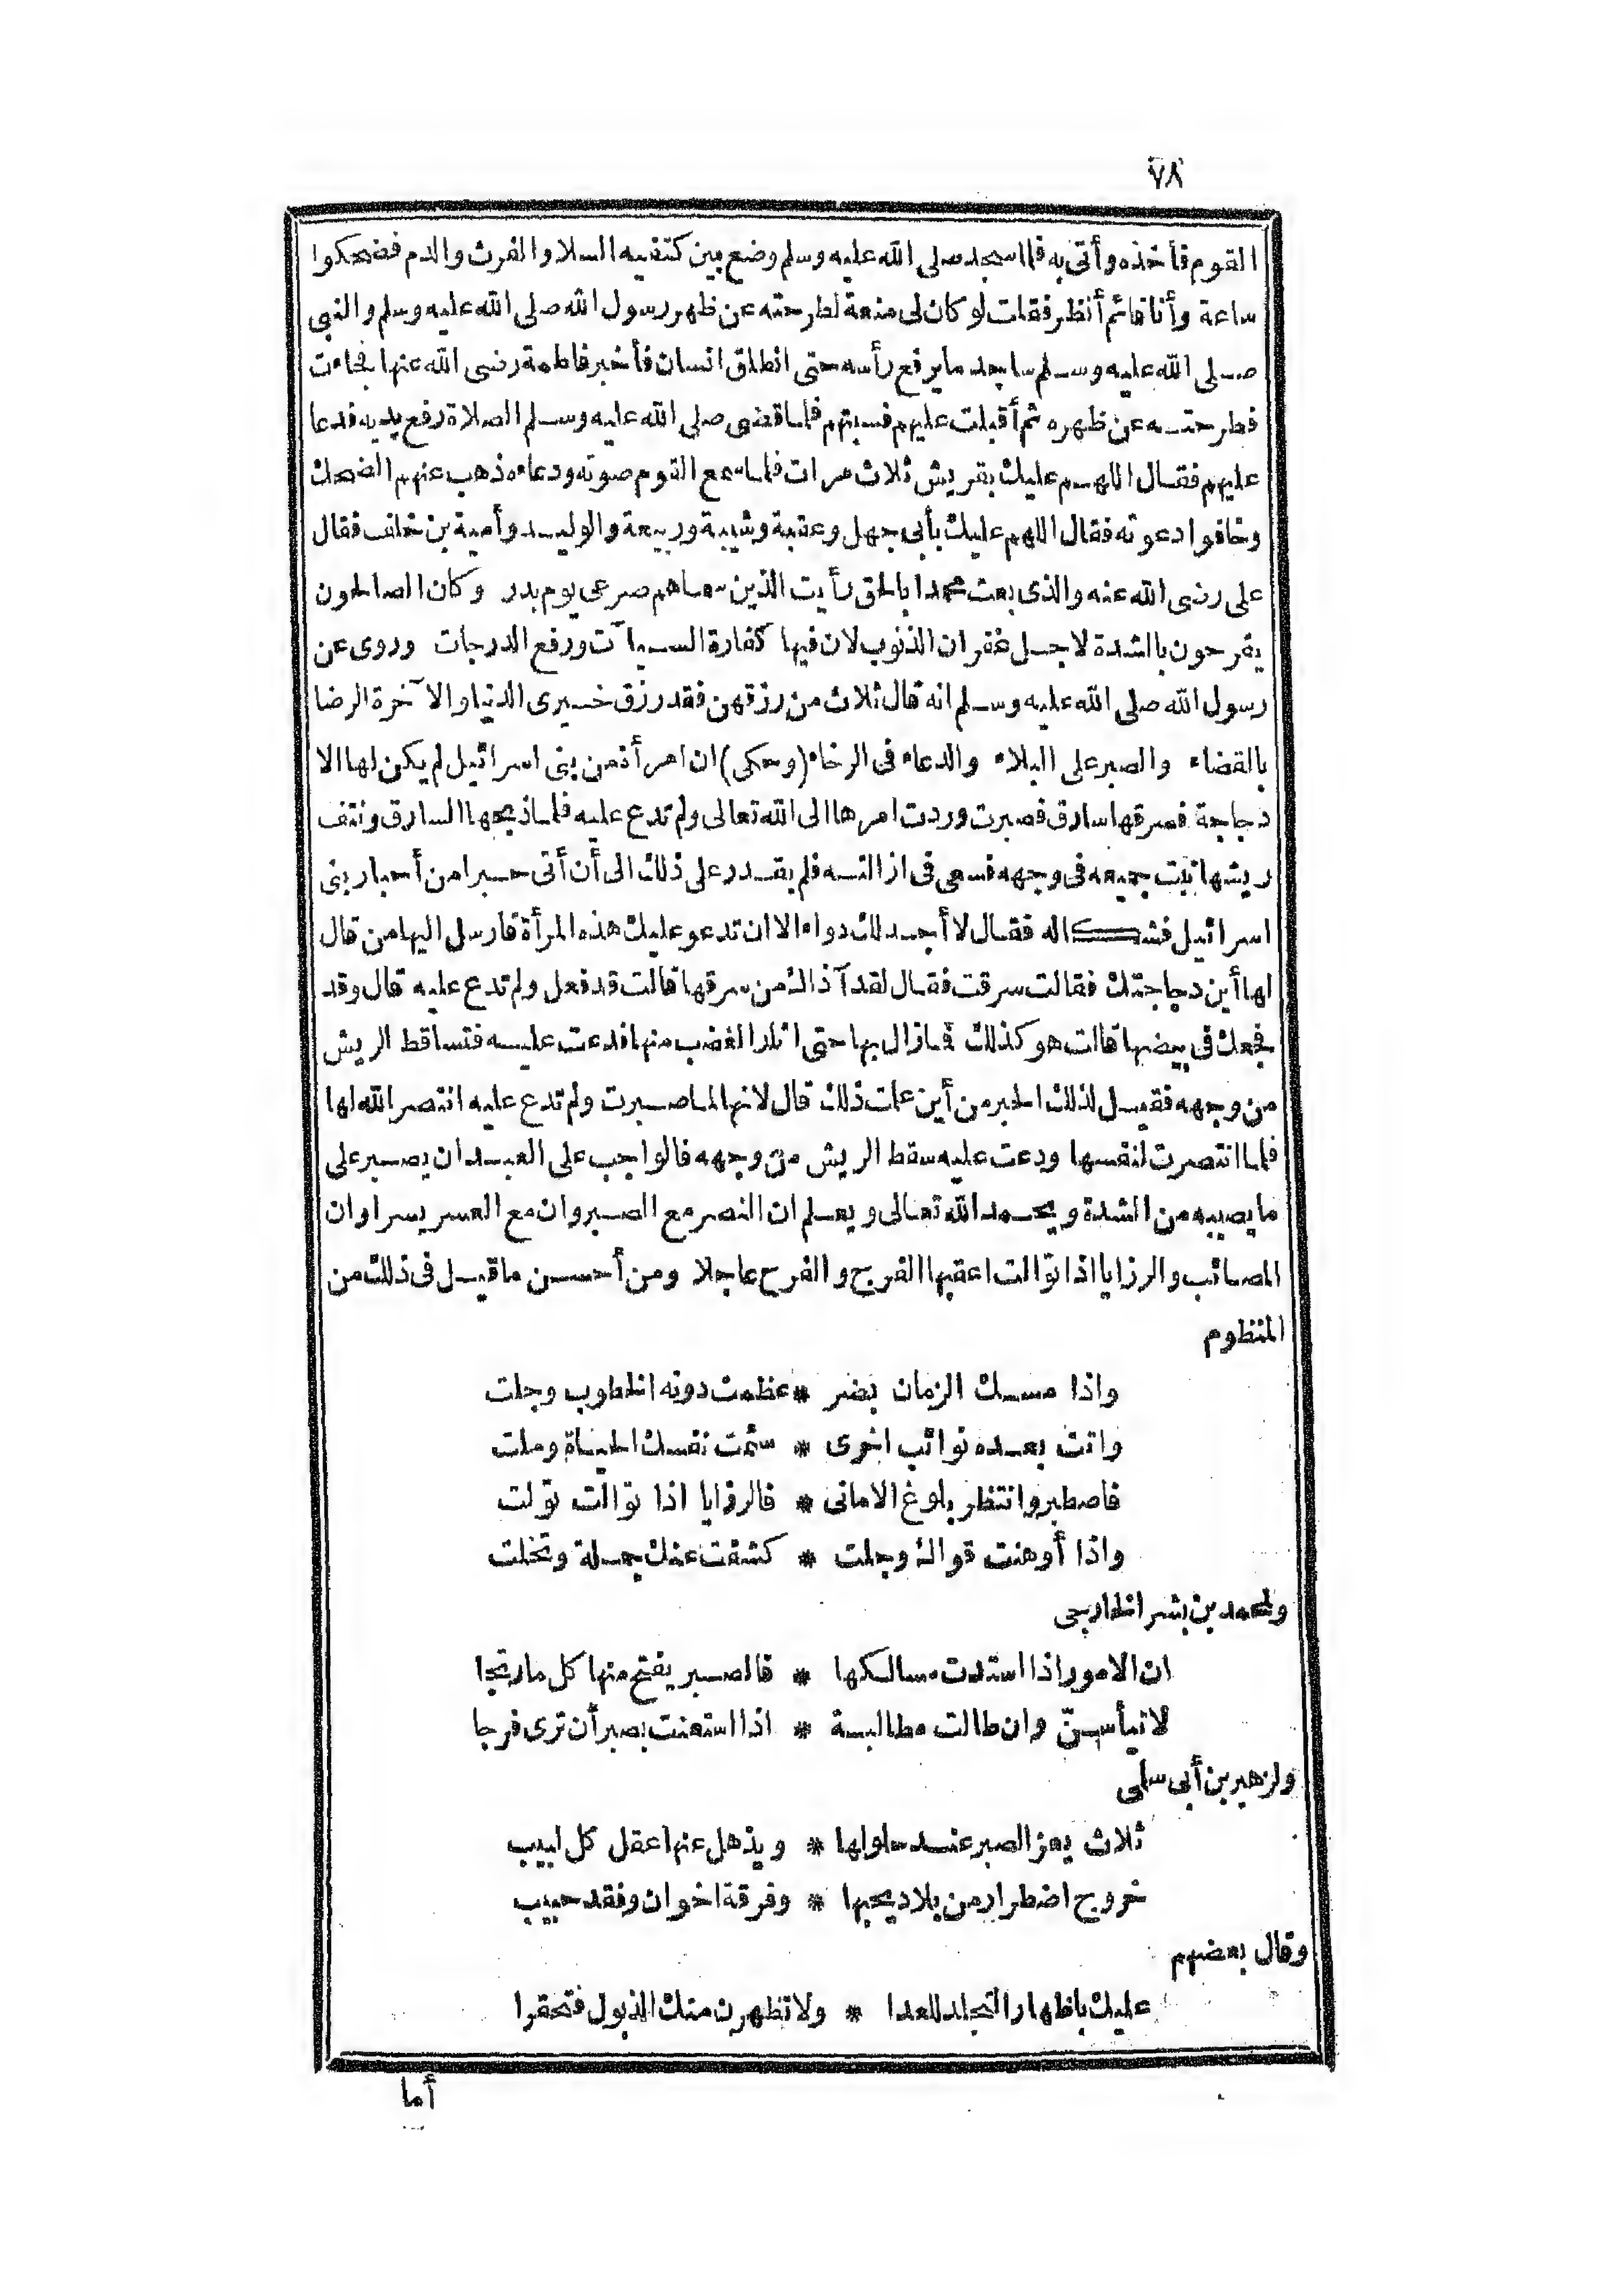 ٧٨
القوم فأخذه وأتى به فلما سجد صلى الله عليه وسلم وضع بين كتفيه السلا والفرث والدم فضحكوا
ساعة وأنا قائم أنظر فقلت لو كان لى منعة لطرحته عن ظهر رسول الله صلى الله عليه وسلم والنبى
صلى الله عليه وسلم ساجد ما يرفع رأسه حتى انطلق انسان فأخبر فاطمة رضى الله عنها فجاءت
فطرحته عن ظهره ثم أقبلت عليهم فسبتهم فلما قضى صلى الله عليه وسلم الصلاة رفع يديه فدعا
عليهم فقال اللهم عليك بقريش ثلاث مرات فلما سمع القوم صوته ودعاءه ذهب عنهم الضحك
وخافوا دعوته فقال اللهم عليك بأبى جهل وعقبة وشيبة وربيعة والوليد وأمية بن خلف فقال
على رضى الله عنه والذى بعث محمدا بالحق رأيت الذين سماهم صرعى يوم بدر وكان الصالحون
يفرحون بالشدة لاجل غفران الذنوب لان فيها كفارة السيآت ورفع الدرجات وروى عن
رسول الله صلى الله عليه وسلم انه قال ثلاث من رزقهن فقد رزق خيرى الدنيا والآخرة الرضا
بالقضاء والصبر على البلاء والدعاء فى الرخاء (وحكى) ان امرأة من بنى اسرائيل لم يكن لها الا
دجاجة فسرقها سارق فصبرت وردت امرها الى الله تعالى ولم تدع عليه فلما ذبحها السارق ونتف
ريشها نبت جميعه فى وجهه فسعى فى ازالته فلم يقدر على ذلك الى أن أتى حبرا من أحبار بنى
اسرائيل فشكا له فقال لا أجد لك دواء الا ان تدعو عليك هذه المرأة فارسل اليها من قال
لها أين دجاجتك فقالت سرقت فقال لقد آذاك من سرقها قالت قد فعل ولم تدع عليه قال وقد
فجعك فى بيضها قالت هو كذلك فما زال بها حتى اثار الغضب منها فدعت عليه فتساقط الريش
من وجهه فقيل لذلك الحبر من أين علمت ذلك قال لانها لما صبرت ولم تدع عليه انتصر الله لها
فلما انتصرت لنفسها ودعت عليه سقط الريش من وجهه فالواجب على العبد ان يصبر على
ما يصيبه من الشدة ويحمد الله تعالى ويعلم ان النصر مع الصبر وان مع العسر يسرا وان
المصائب والرزايا اذا توالت اعقبها الفرج والفرح عاجلا ومن أحسن ما قيل فى ذلك من
المنظوم
واذا مسك الزمان بضر * عظمت دونه الخطوب وجلت
واتت بعده نوائب اخرى * سئمت نفسك الحياة وملت
فاصطبر وانتظر بلوغ الامانى * فالرزايا اذا توالت تولت
واذا أوهنت قواك وجلت * كشفت عنك جملة وتخلت
ولمحمد بن بشر الخارجى
ان الامور اذا استدت مسالكها * فالصبر يفتح منها كل ما رتجا
لا تيأسنّ وان طالت مطالبة * اذا استعنت بصبر أن ترى فرجا
ولزهير بن أبى سلمى
ثلاث يعز الصبر عند حلولها * ويذهل عنها عقل كل لبيب
خروج اضطرار من بلاد يحبها * وفرقة اخوان وفقد حبيب
وقال بعضهم
عليك باظهار التجلد للعدا * ولا تظهرن منك الذبول فتحقرا
أما